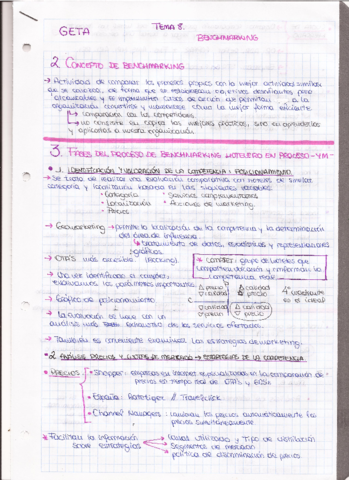 GETA
TEMA 8.
BENCHMARKING
2. CONCEPTO DE BENCHMARKING
→ Actividad de comparar los procesos propios con la mejor actividad similar
que se conozca, de forma que se establezcan objetivos desafiantes pero
alcanzables y se implementen cursos de acción que permitan a la
organización convertirse y mantenerse como la mejor forma eficiente
→ comparación con los competidores
→ no consiste en copiar las mejores prácticas, sino en aprenderlas
y aplicarlas a nuestra organización
3. FASES DEL PROCESO DE BENCHMARKING HOTELERO EN PROCESO -YM-
1. IDENTIFICACIÓN Y VALORACIÓN DE LA COMPETENCIA: POSICIONAMIENTO
→ Se trata de realizar una evaluación comparativa con hoteles de similar
categoría y localización basada en las siguientes variables:
• Categoría • Servicios complementarios
• Localización • Acciones de marketing
• Precios
→ Geomarketing → permite la localización de la competencia y la determinación
del área de influencia
→ tratamiento de datos, estadísticas y representaciones
gráficas
→ OTA'S más accesible (Booking)
→ COMPSET: grupo de hoteles que
competencia real
→ Una vez identificado el compset,
evaluamos los parámetros importantes
△ precio
▽ calidad
△ calidad
△ precio
→ Gráfico de posicionamiento
C
▽ calidad
▽ precio
△ calidad
▽ precio
4º cuadrante
es el ideal
→ La evaluación se hace con un
análisis más exhaustivo de los servicios ofertados.
→ También es conveniente examinar las estrategias de marketing.
2. ANÁLISIS PRECIOS Y CUOTAS DE MERCADO → ESTRATEGIAS DE LA COMPETENCIA
→ PRECIOS
• Shopper: empresas en internet especializadas en la comparación de
precios en tiempo real de OTA'S y GDS's
• España: RateTiger y TravelClick
• Channel Managers: cambian los precios automáticamente en
→ Facilitan la información
sobre estrategias
→ Canales utilizados y tipo de distribución
Segmentos de mercado
política de discriminación de precios